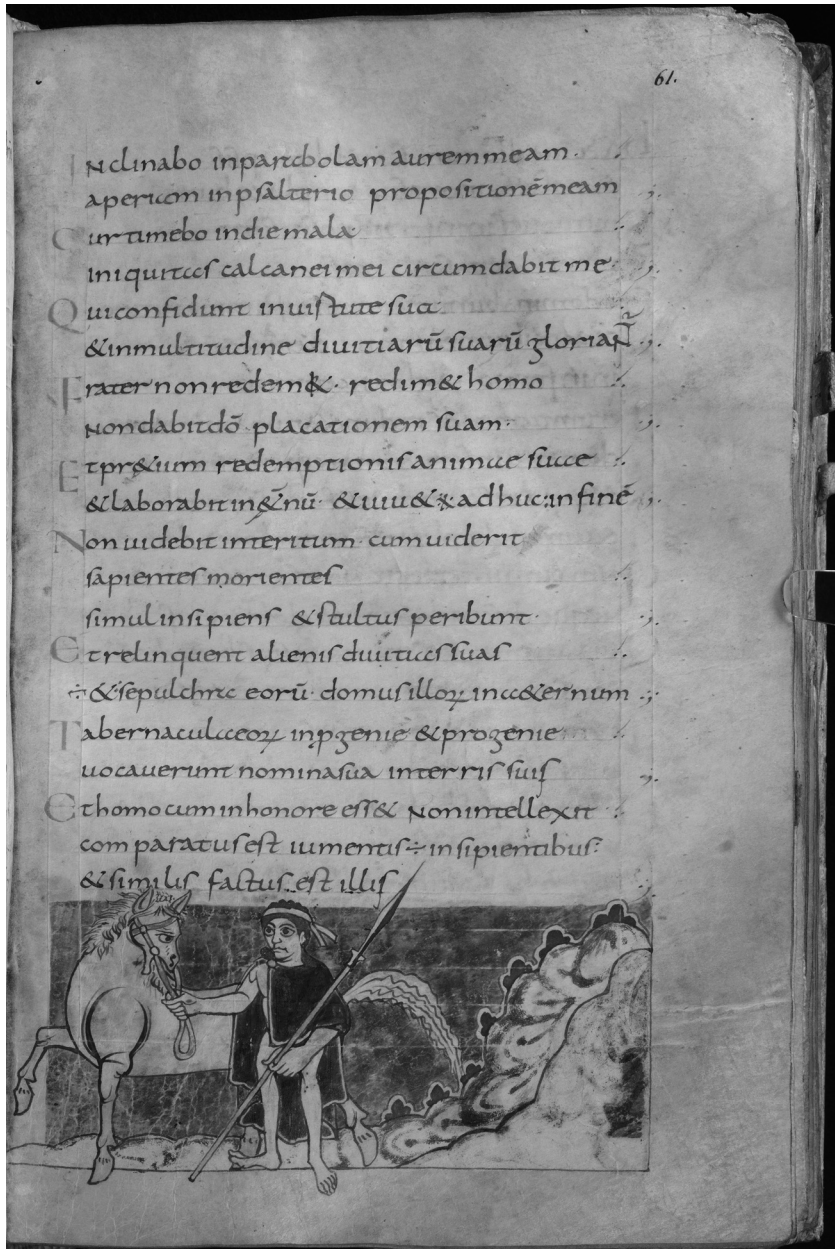 61.
Inclinabo inparabolam auremmeam.
aperiam inpsalterio propositionēmeam
Curtimebo indiemala
iniquitas calcaneimei circumdabit me.
Quiconfidunt inuirtute sua
&inmultitudine diuitiarū suarū gloriaNtr
Frater nonredem& · redim& homo
Nondabitdō placationem suam·
Etpr&ium redemptionisanimae suae
&laborabitin&nū· &uiu& adhuc:infinē
Nonuidebit interitum· cumuiderit
sapientes morientes
simulinsipiens &stultusperibunt·
Etrelinquent alienisdiuitiassuas
÷&sepulchra eorū· domusilloꝝ ina&ernum
Tabernaculaeoꝝ inꝓgenie &progenie
uocauerunt nominasua interris suis
Ethomocuminhonore ess& Nonintellexit
comparatusest iumentis÷insipientibus:
&similis factus est illis